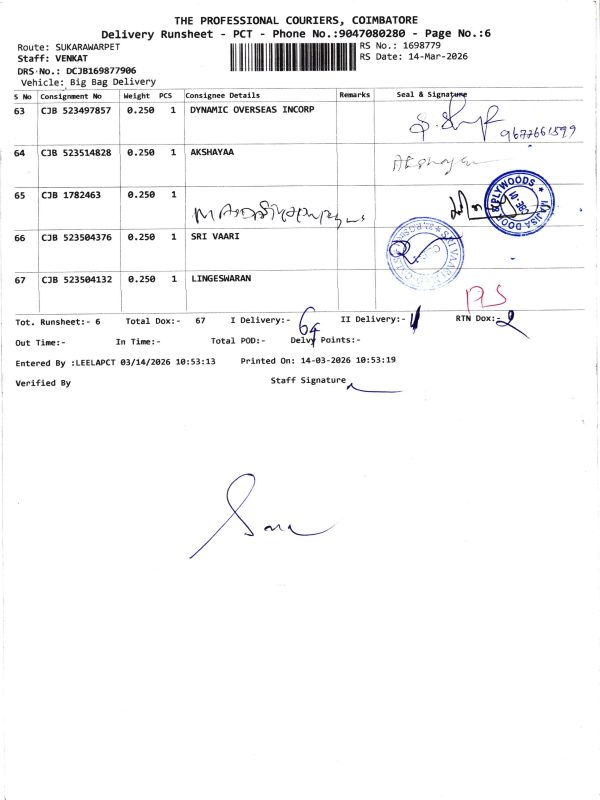 THE PROFESSIONAL COURIERS, COIMBATORE
Delivery Runsheet - PCT - Phone No.:9047080280 - Page No.:6
Route: SUKARAWARPET RS No.: 1698779
Staff: VENKAT RS Date: 14-Mar-2026
DRS No.: DCJB169877906
Vehicle: Big Bag Delivery
S No Consignment No Weight PCS Consignee Details Remarks Seal & Signature
63 CJB 523497857 0.250 1 DYNAMIC OVERSEAS INCORP
9677661599
64 CJB 523514828 0.250 1 AKSHAYAA
Akshayaa
65 CJB 1782463 0.250 1
PLYWOODS
66 CJB 523504376 0.250 1 SRI VAARI
SRI VAARI
67 CJB 523504132 0.250 1 LINGESWARAN
Tot. Runsheet:- 6 Total Dox:- 67 I Delivery:- 64 II Delivery:- RTN Dox:- 2
Out Time:- In Time:- Total POD:- Delvy Points:-
Entered By :LEELAPCT 03/14/2026 10:53:13 Printed On: 14-03-2026 10:53:19
Verified By Staff Signature